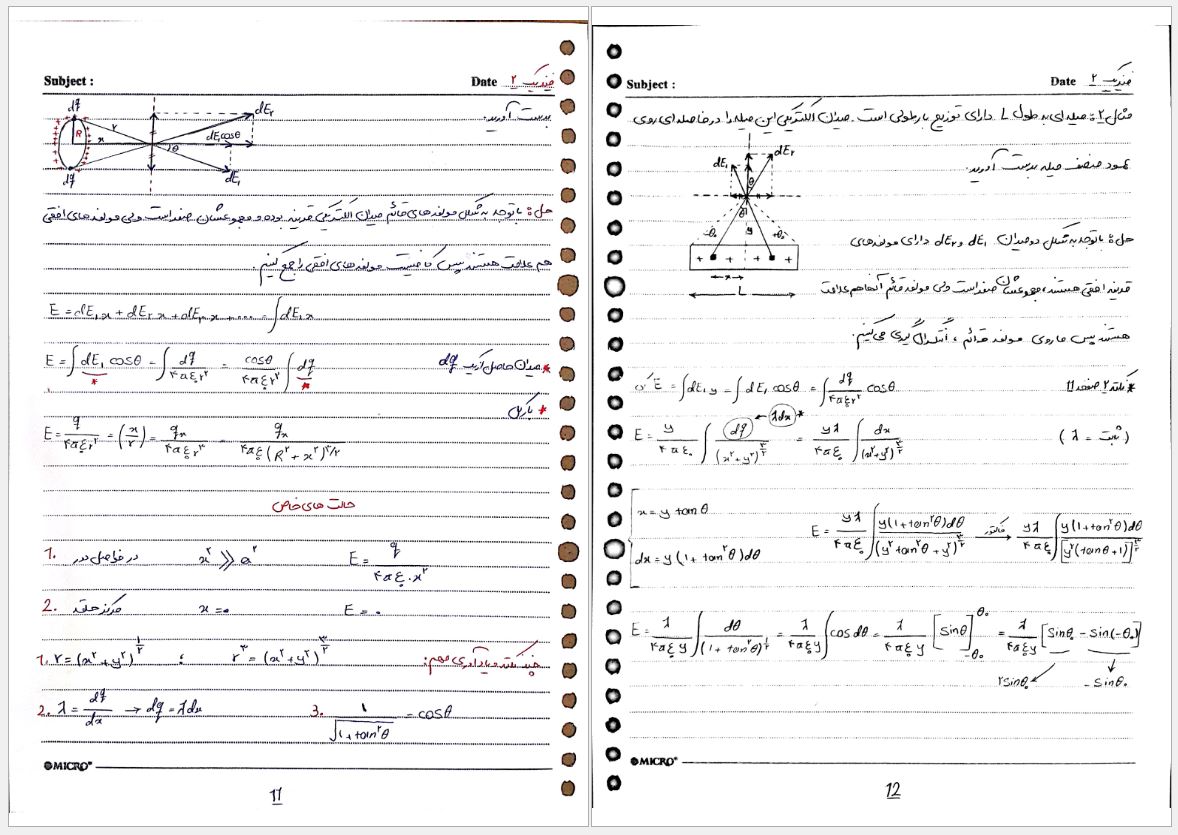 Subject :
Date فیزیک ۲
بدست آورید.
dq
R
r
x
θ
dE۲
dE۱cosθ
dE۱
dq
حل: باتوجه به شکل مولفه های قائم میدان الکتریکی قرینه بوده و مجموعشان صفر است ولی مولفه های افقی
هم علامت هستند پس کافیست مولفه های افقی را جمع کنیم.
E = dE۱x + dE۲x + dE۳x + ..... = ∫dE۱x
E = ∫dE۱ cosθ = ∫ dq/۴πε۰r² = cosθ/۴πε۰r² ∫dq
* میدان حاصل از یک dq
* بار کل
E = q/۴πε۰r² = (x/r) = qx/۴πε۰r³ = qx/۴πε۰(R² + x²)^۳/۲
حالت های خاص
1. در فواصل دور x² ≫ a² E = q/۴πε۰.x²
2. مرکز حلقه x = ۰ E = ۰
چند نکته و یادآوری مهم:
1. r = (x² + y²)^۱/۲ ; r³ = (x² + y²)^۳/۲
2. λ = dq/dx → dq = λdx
3. ۱/√(1 + tan²θ) = cosθ
MICRO
11
Subject :
Date فیزیک ۲
مثال ۲: میله ای به طول L دارای توزیع بار طولی است. میدان الکتریکی این میله را در فاصله ای روی
عمود منصف میله بدست آورید.
dE۱
dE۲
θ
-θ۰
y
+θ۰
+ + + +
x
L
حل: باتوجه به شکل دو میدان dE۱ و dE۲ دارای مولفه های
قرینه افقی هستند، مجموعشان صفر است ولی مولفه قائم آنها هم علامت
هستند پس ما روی مولفه قائم، انتگرال گیری می کنیم.
E = ∫dE۱y = ∫dE۱ cosθ = ∫ dq/۴πε۰r² cosθ
* نکته ۲ صفحه 11
E = y/۴πε۰ ∫ dq/(x²+y²)^۳/۲ ← λdx * = yλ/۴πε۰ ∫ dx/(x²+y²)^۳/۲
(ثابت = λ)
x = y tanθ
dx = y(1 + tan²θ)dθ
E = yλ/۴πε۰ ∫ y(1+tan²θ)dθ/(y²tan²θ + y²)^۳/۲ فاکتور→ yλ/۴πε۰ ∫ y(1+tan²θ)dθ/[y²(tanθ+1)]^۳/۲
E = λ/۴πε۰y ∫ dθ/(1 + tan²θ)^۱/۲ = λ/۴πε۰y ∫cosdθ = λ/۴πε۰y [sinθ]^θ۰_-θ۰ = λ/۴πε۰y [sinθ۰ - sin(-θ۰)]
۲sinθ۰ ↙ ↓ -sinθ۰
MICRO
12